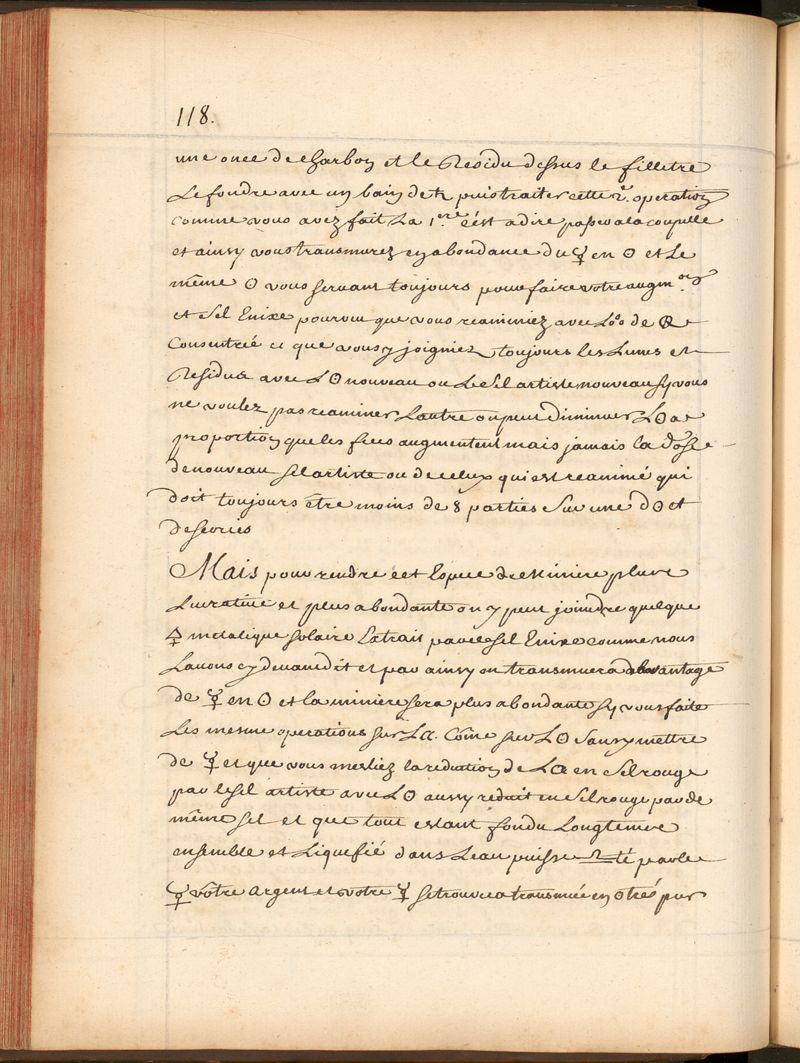 118.
une once de charbon et le Residu dessus le filletre
Le fondre avec un bain de ♄ puis traiter cette 2.e operation
comme vous avez fait La 1.re c'est a dire passer a la coupelle
et ainsy vous transmurez en abondance du ☿ en ☉ et Le
même ☉ vous servant toujours pour faire votre augm.on
et Sel Enixe pourvu que vous reanimiez avec de
Consentrée et que vous y joigniez toujours les Lunes et
Residus avec L☉ nouveau ou Le Sel artiste nouveau sy vous
ne voulez pas reanimer Lautre on peut Diminuer L☉ a
proportion que les fices augmentent mais jamais la dose
de nouveau Sel artiste ou de celuy qui est reanimé qui
doit toujours être moins de 8 parties Sur une d☉ et
de scories
Mais pour rendre cet Espece de Miniere plus
Lucrative et plus abondante on y peut joindre quelque
🜍 metalique Solaire Extrait par le Sel Enixe comme nous
Lavons cy devant dit et par ainsy on transmuera davantage
de ☿ en ☉ et la miniere sera plus abondante sy vous faite
Les mesme operations sur La ☾. Côme sur L☉ Sans y mettre
de ☿ et que vous mesliez la reduction de La ☾ en Sel rouge
par le Sel artiste avec L☉ aussy reduit en Sel rouge par de
même sel et que tout estant fondu Longtemps
ensemble et Liquefié dans Leau puisse par le
☿ votre argent et votre ☿ se trouvera transmuée en ☉ trés pur